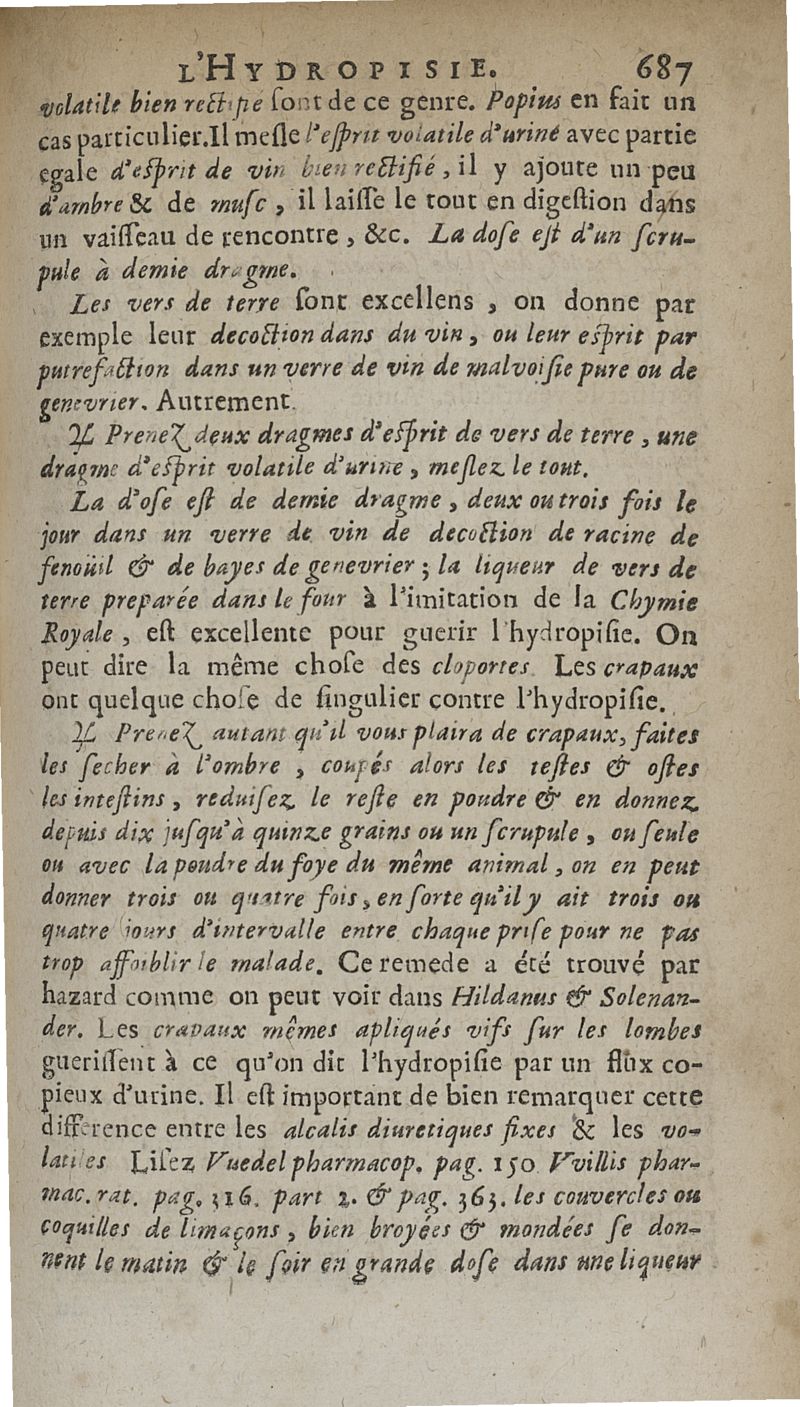 L'HYDROPISIE. 687
volatile bien rectifié ſont de ce genre. Popius en fait un
cas particulier.Il meſle l'eſprit volatile d'uriné avec partie
egale d'eſprit de vin bien rectifié, il y ajoute un peu
d'ambre & de muſc, il laiſſe le tout en digeſtion dans
un vaiſſeau de rencontre, &c. La doſe eſt d'un ſcru-
pule à demie dragme.
Les vers de terre ſont excellens, on donne par
exemple leur decoction dans du vin, ou leur eſprit par
putrefaction dans un verre de vin de malvoiſie pure ou de
genevrier. Autrement.
♃ Prenez deux dragmes d'eſprit de vers de terre, une
dragme d'eſprit volatile d'urine, meſlez le tout.
La d'oſe eſt de demie dragme, deux ou trois fois le
jour dans un verre de vin de decoction de racine de
fenoüil & de bayes de genevrier; la liqueur de vers de
terre preparée dans le four à l'imitation de la Chymie
Royale, eſt excellente pour guerir l'hydropiſie. On
peut dire la même choſe des cloportes. Les crapaux
ont quelque choſe de ſingulier contre l'hydropiſie.
♃ Prenez autant qu'il vous plaira de crapaux, faites
les ſecher à l'ombre, coupés alors les teſtes & oſtes
les inteſtins, reduiſez le reſte en poudre & en donnez
depuis dix juſqu'à quinze grains ou un ſcrupule, ou ſeule
ou avec la poudre du foye du même animal, on en peut
donner trois ou quatre fois, en ſorte qu'il y ait trois ou
quatre jours d'intervalle entre chaque priſe pour ne pas
trop affoiblir le malade. Ce remede a été trouvé par
hazard comme on peut voir dans Hildanus & Solenan-
der. Les crapaux mêmes apliqués vifs ſur les lombes
gueriſſent à ce qu'on dit l'hydropiſie par un flux co-
pieux d'urine. Il eſt important de bien remarquer cette
difference entre les alcalis diuretiques fixes & les vo-
latiles Liſez Vuedel pharmacop. pag. 150 Vvillis phar-
mac. rat. pag. 316. part 2. & pag. 363. les couvercles ou
coquilles de limaçons, bien broyées & mondées ſe don-
nent le matin & le ſoir en grande doſe dans une liqueur